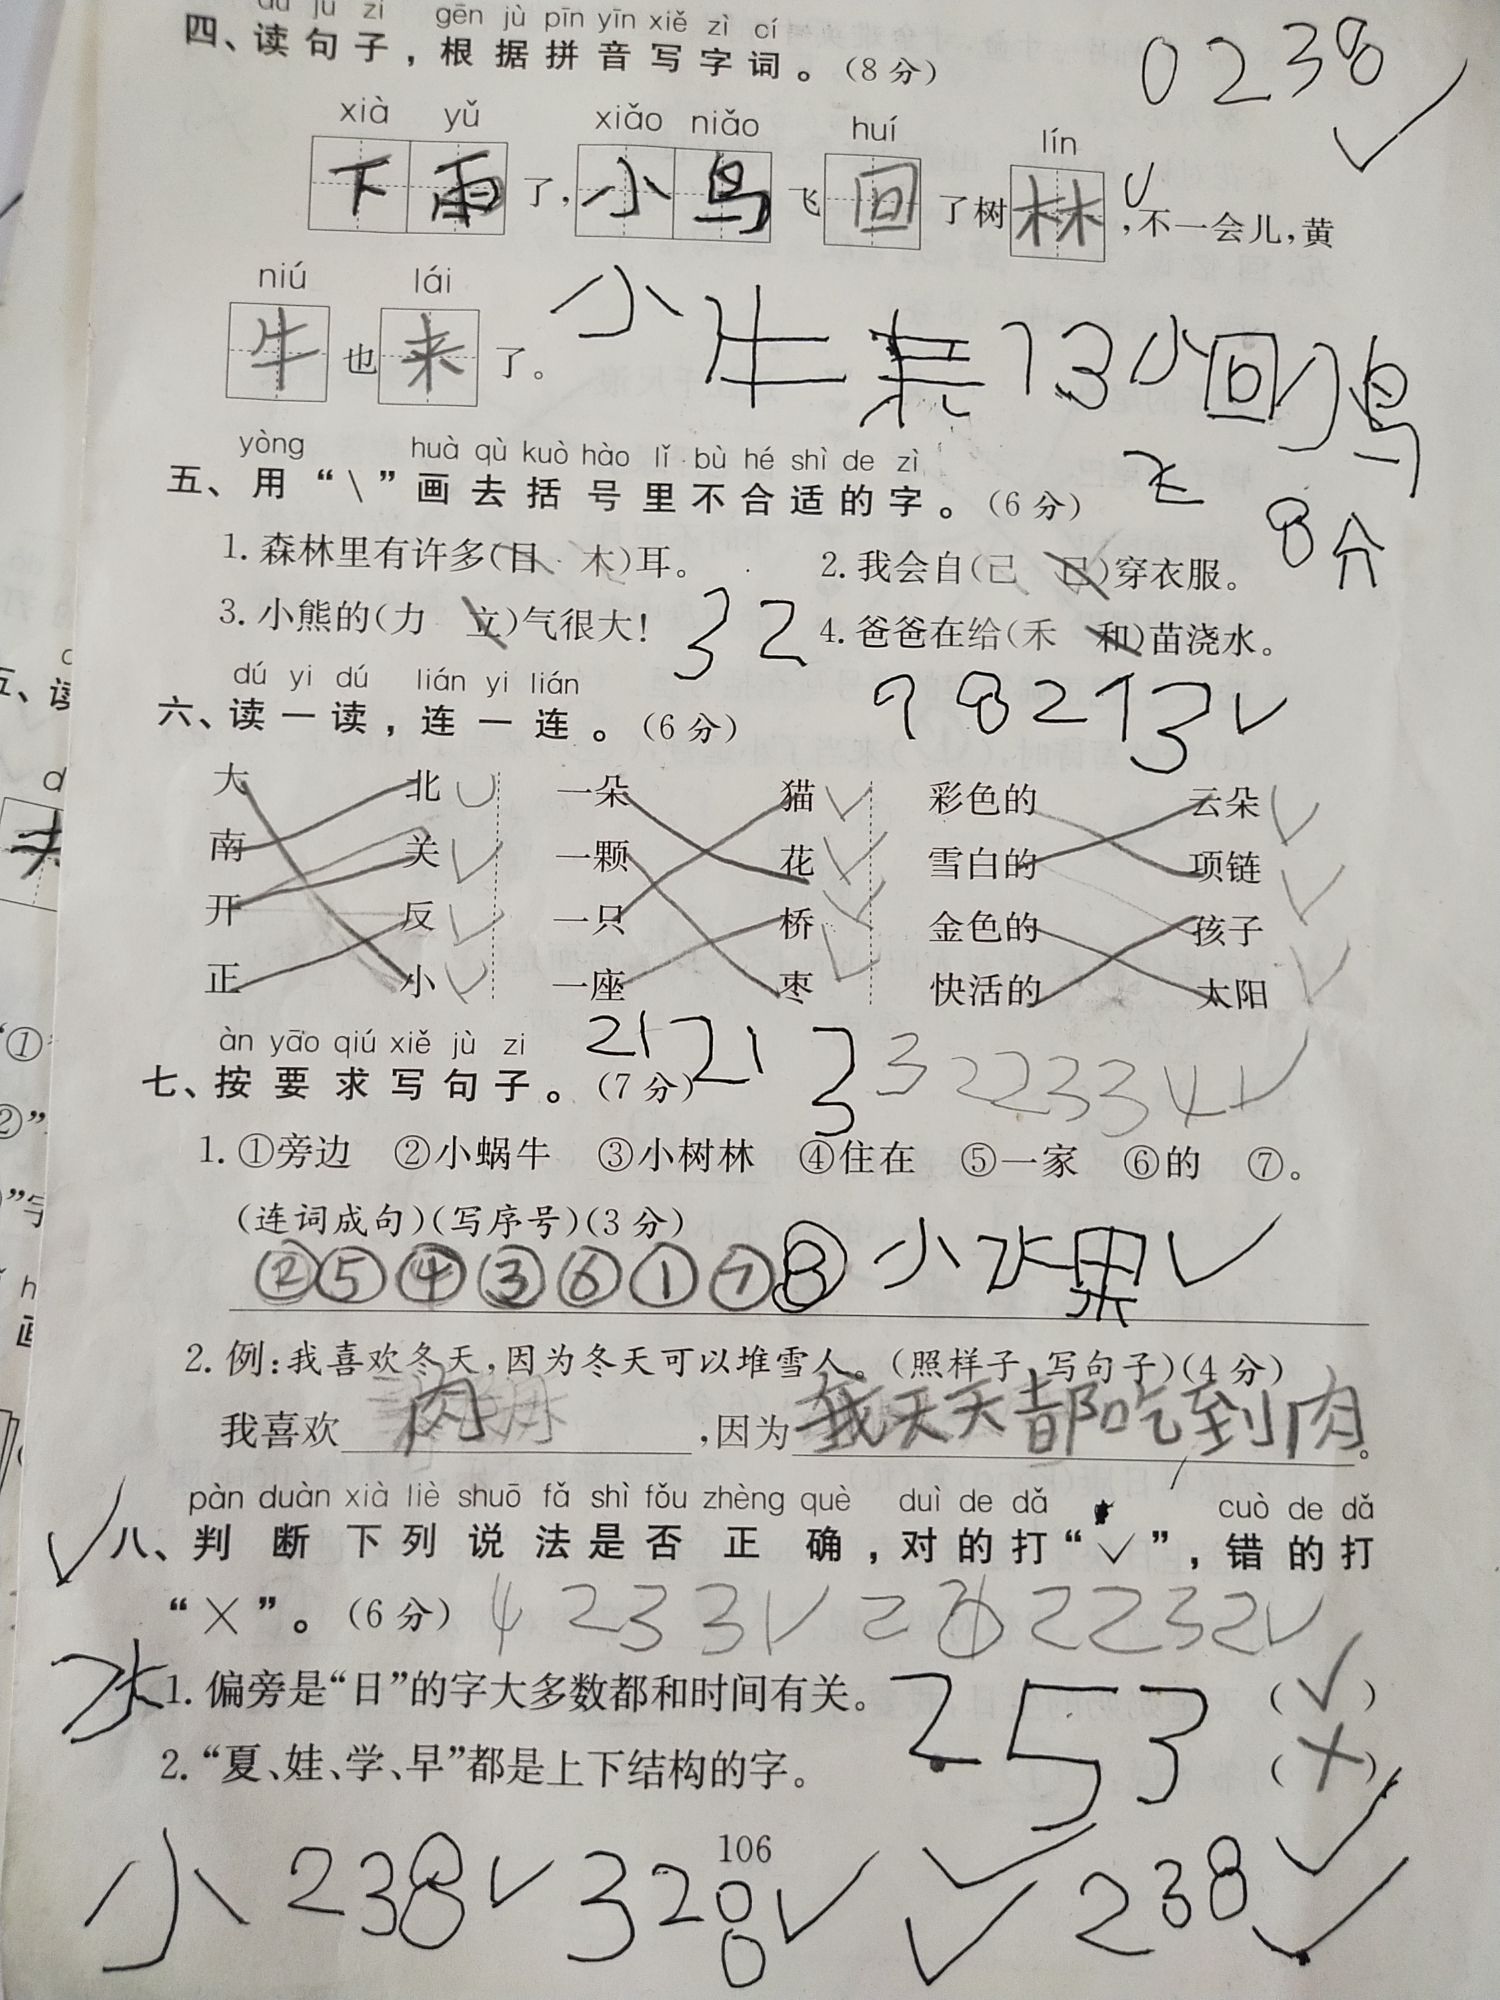 dú jù zi gēn jù pīn yīn xiě zì cí
四、读句子，根据拼音写字词。(8分)
0238
xià yǔ xiǎo niǎo huí lín
下雨了，小鸟飞回了树林，不一会儿，黄
niú lái
牛也来了。
小牛
13小回小鸟
飞
8分
yòng huà qù kuò hào lǐ bù hé shì de zì
五、用“\”画去括号里不合适的字。(6分)
1. 森林里有许多(日 木)耳。 2. 我会自(己 已)穿衣服。
3. 小熊的(力 立)气很大! 32 4. 爸爸在给(禾 和)苗浇水。
dú yi dú lián yi lián
六、读一读，连一连。(6分)
98213✓
大 北 一朵 猫 彩色的 云朵
南 关 一颗 花 雪白的 项链
开 反 一只 桥 金色的 孩子
正 小 一座 枣 快活的 太阳
àn yāo qiú xiě jù zi
七、按要求写句子。(7分)
21213322334✓
1. ①旁边 ②小蜗牛 ③小树林 ④住在 ⑤一家 ⑥的 ⑦。
(连词成句)(写序号)(3分)
②⑤④③⑥①⑦⑧ 小水果✓
2. 例：我喜欢冬天，因为冬天可以堆雪人。(照样子，写句子)(4分)
我喜欢肉，因为我天天都吃到肉。
pàn duàn xià liè shuō fǎ shì fǒu zhèng què duì de dǎ cuò de dǎ
八、判断下列说法是否正确，对的打“✓”，错的打
“×”。(6分)
1. 偏旁是“日”的字大多数都和时间有关。 (✓)
253
2. “夏、娃、学、早”都是上下结构的字。 (×)
106
小238✓320✓ 238✓